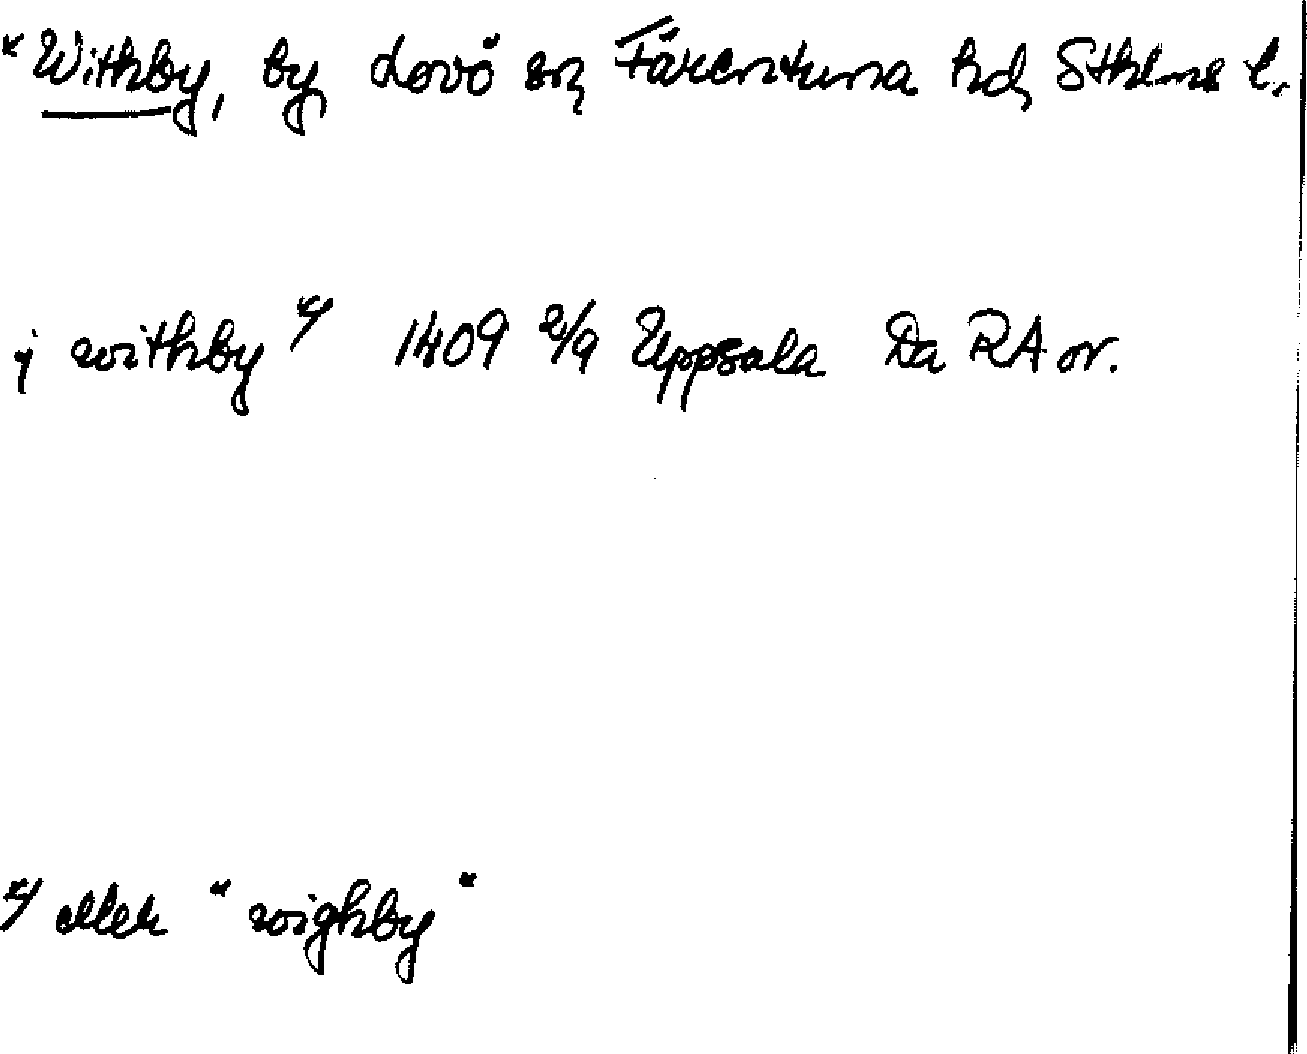 *Withby, by, Lovö sn, Färentuna hd, Sthlms l.
j withby x) 1409 2/9 Uppsala Da RA or.
x) eller "wighby"